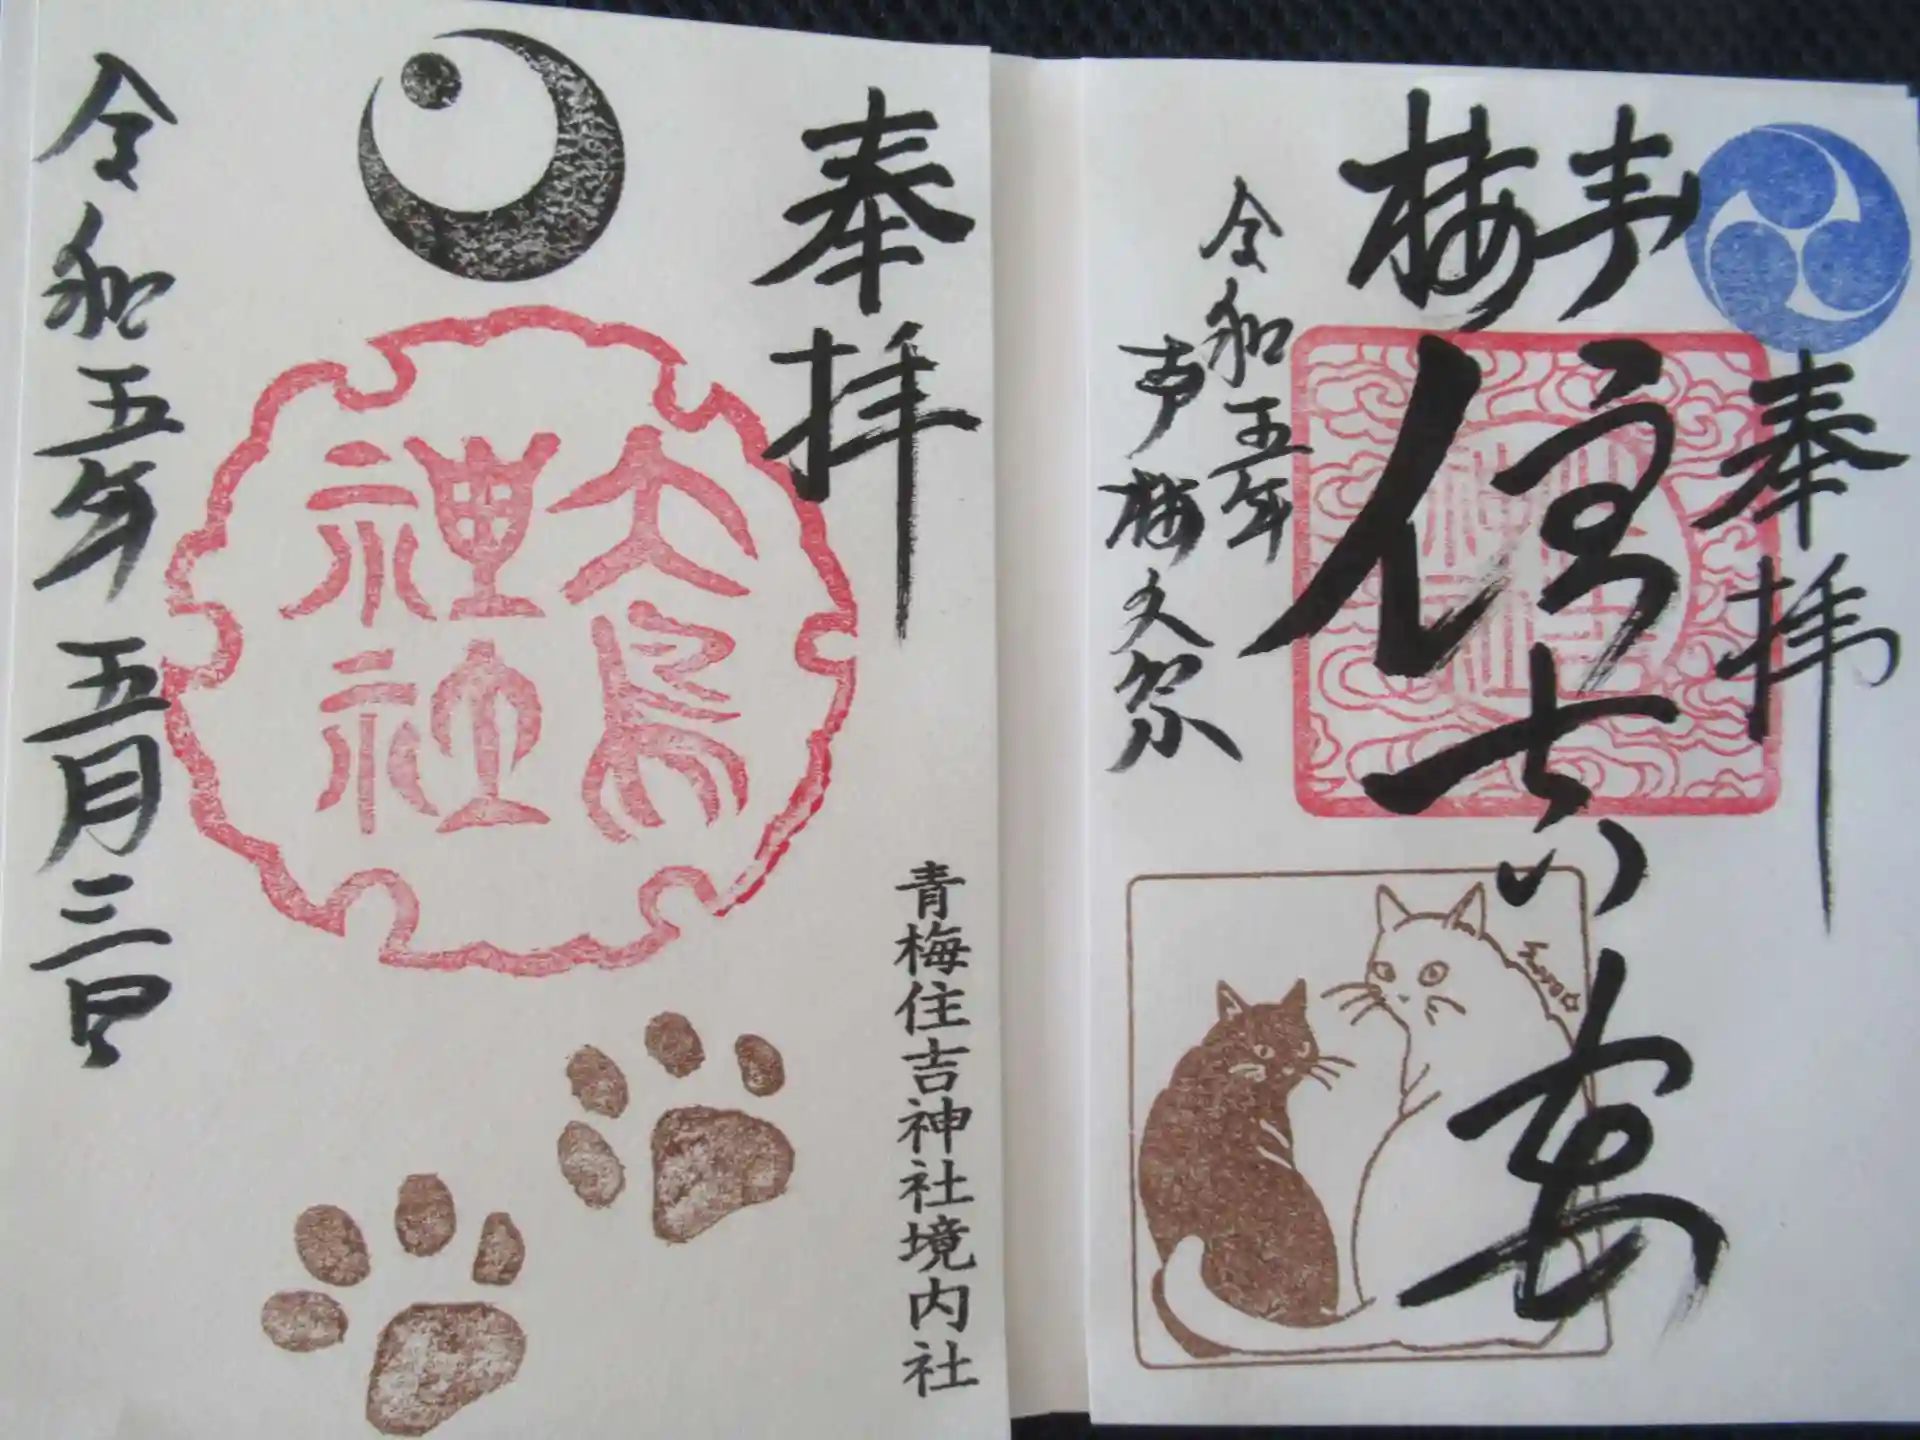 奉拝
青梅
住吉
令和五年
青梅大祭
奉拝
大鳥
神社
青梅住吉神社境内社
令和五年五月三日